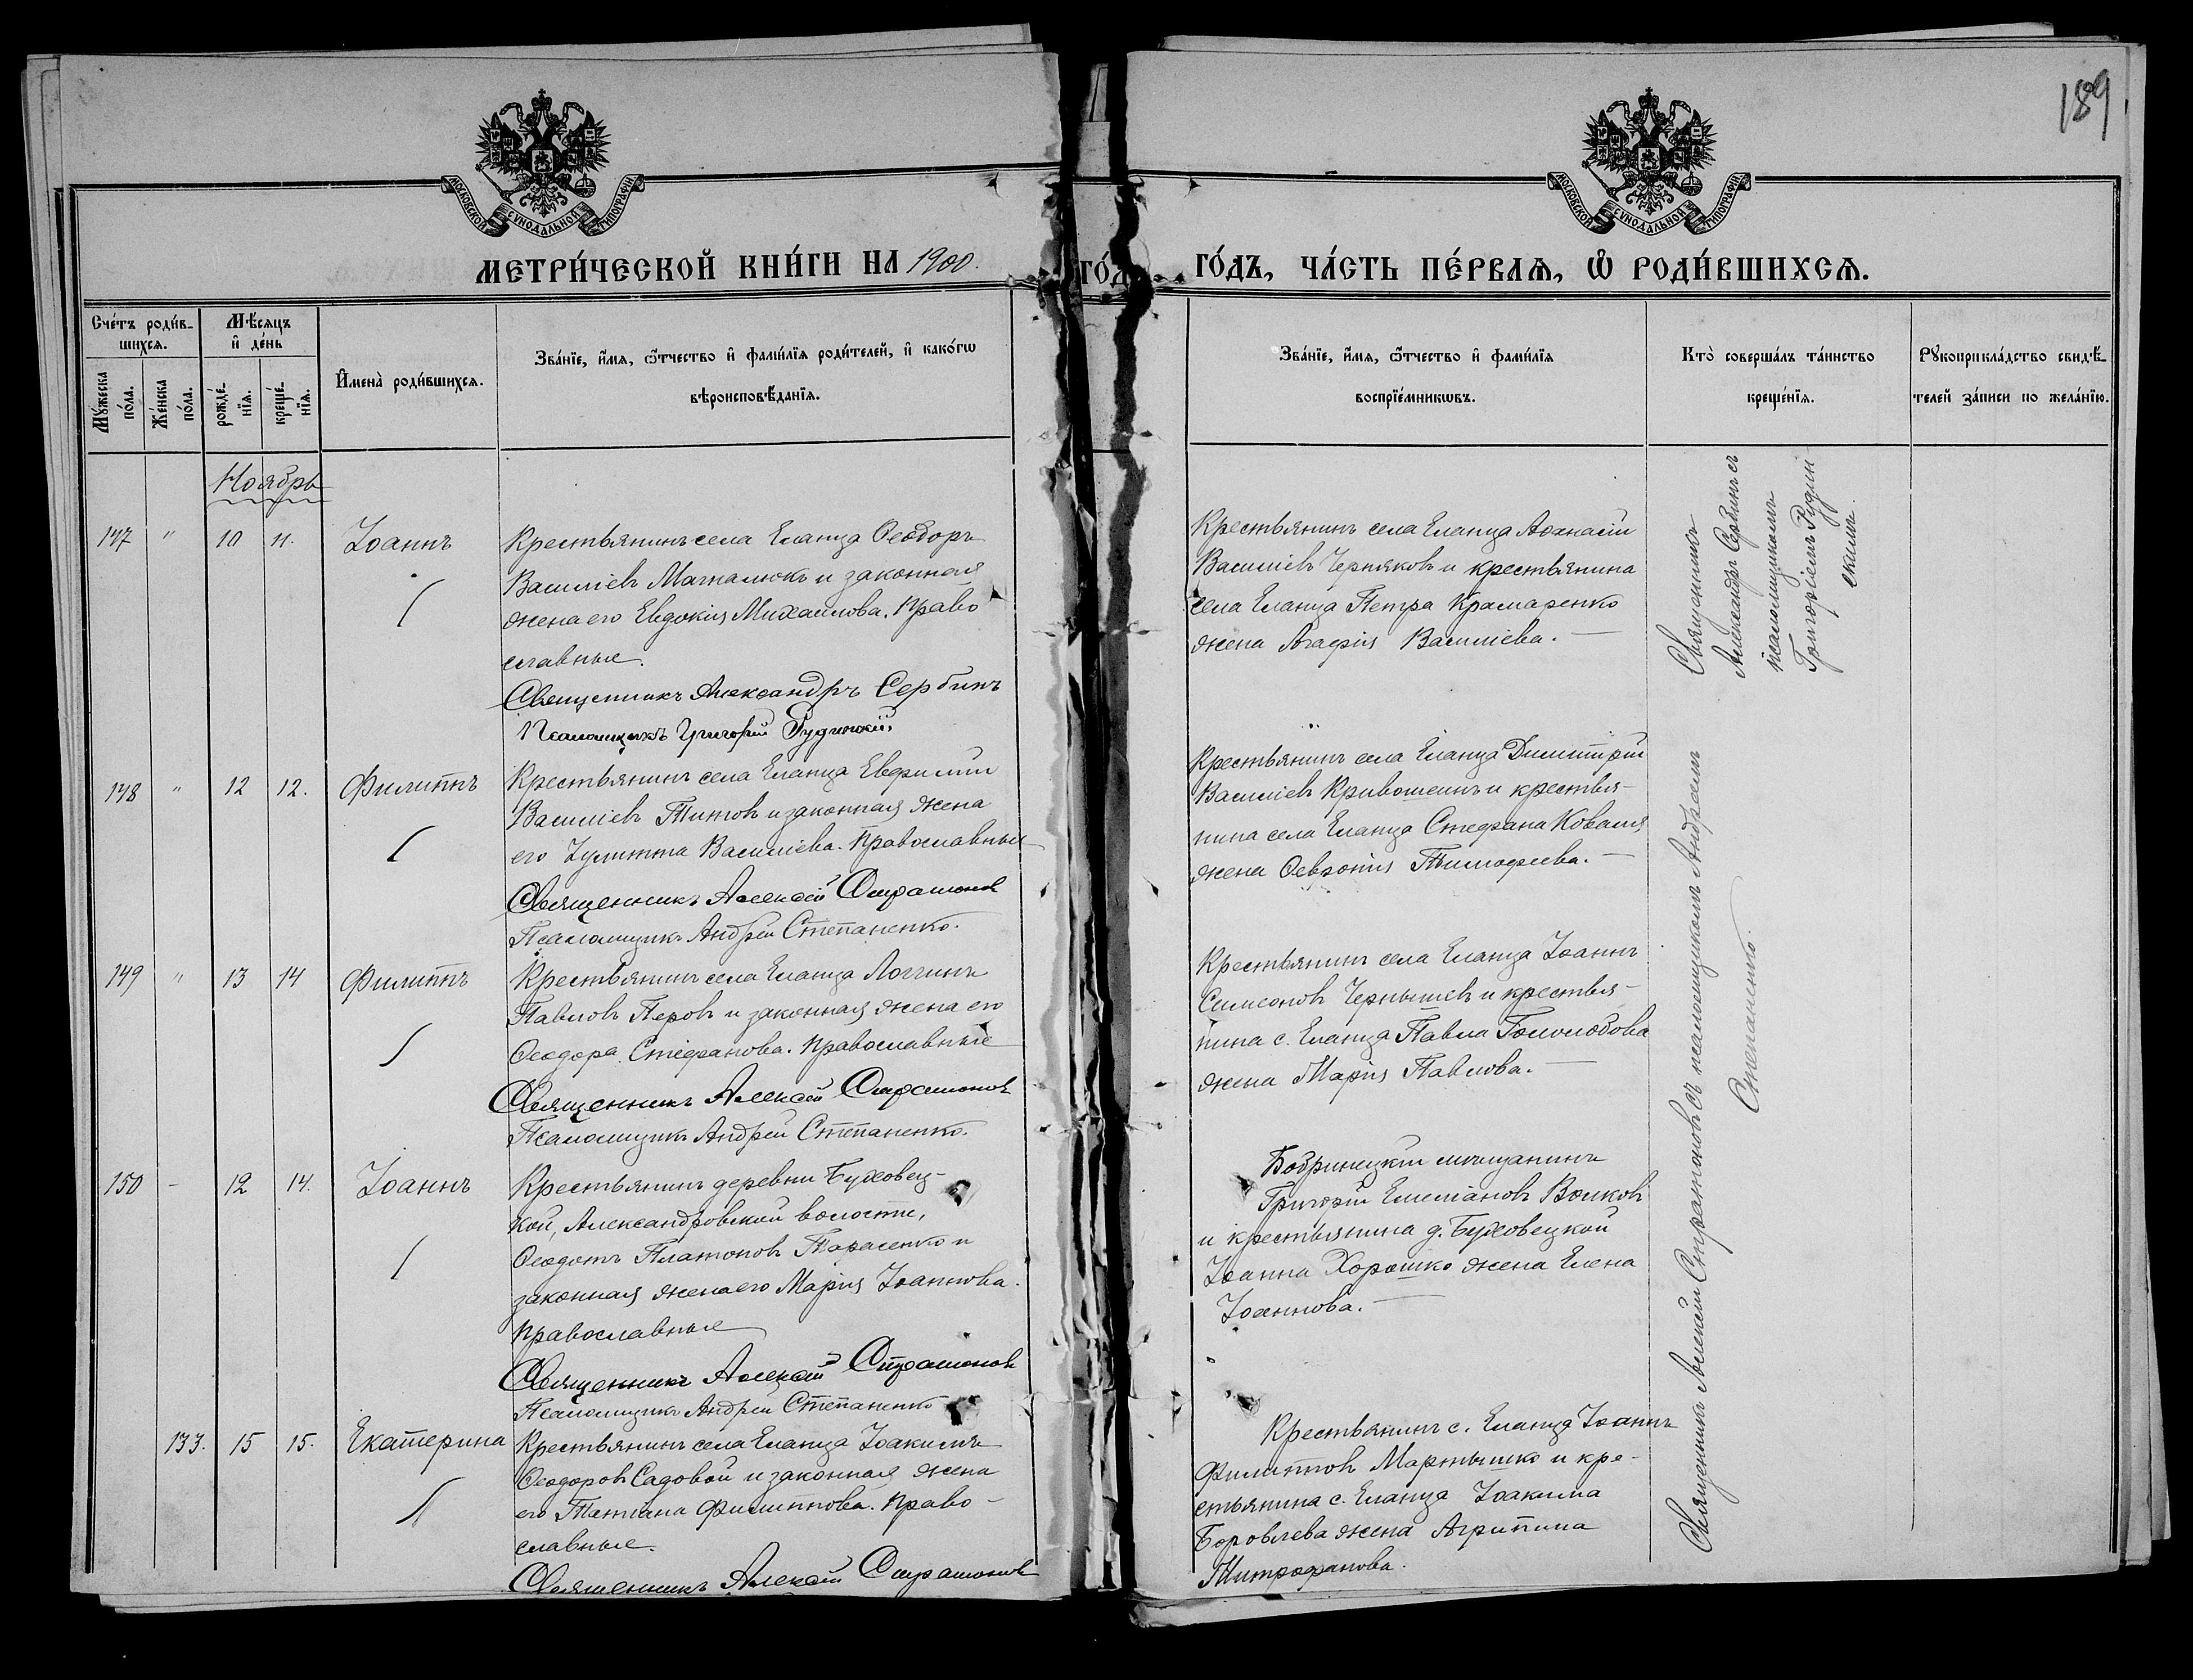 189
МОСКОВСКОЙ СУНОДАЛЬНОЙ ТИПОГРАФІИ
МОСКОВСКОЙ СУНОДАЛЬНОЙ ТИПОГРАФІИ
МЕТРИ́ЧЕСКОЙ КНИ́ГИ НА 1900.
ГО́Д
ГО́ДЪ, ЧА́СТЬ ПЕ́РВАѦ, Ѽ РОДИ́ВШИХСѦ.
Сче́тъ роди́в-
шихсѧ.
Му́жеска
по́ла.
Же́нска
по́ла.
Мѣ́сѧцъ
и҆ де́нь
рожде́-
нїѧ.
креще́-
нїѧ.
И҆мена̀ роди́вшихсѧ.
Зва́нїе, и҆́мѧ, ѻ҆́тчество и҆ фами́лїѧ роди́телей, и҆ како́гѡ
вѣроисповѣ́данїѧ.
Зва́нїе, и҆́мѧ, ѻ҆́тчество и҆ фами́лїѧ
воспрїе́мникѡвъ.
Кто̀ соверша́лъ та́инство
креще́нїѧ.
Рꙋкоприкла́дство свидѣ́-
телей за́писи по жела́нїю.
Ноябрь
147 " 10 11. Іоаннъ
Крестьянинъ села Еланца Ѳеодоръ
Василіевъ Магналюкъ и законная
жена его Евдокія Михаилова. Право
славные.
Священникъ Александръ Сербинъ
Псаломщикъ Григорій Рудинскій.
Крестьянинъ села Еланца Аѳанасій
Василіевъ Черняковъ и крестьянина
села Еланца Петра Крамаренко
жена Агафія Василіева. —
Священникъ
Александръ Сербинъ съ
псаломщикомъ
Григоріемъ Рудин-
скимъ.
148 " 12 12. Филиппъ
Крестьянинъ села Еланца Евфимій
Василіевъ Титовъ и законная жена
его Іулитта Василіева. Православные
Священникъ Алексій Стратоновъ
Псаломщикъ Андрей Степаненко.
Крестьянинъ села Еланца Димитрій
Василіевъ Кривошеинъ и крестья-
нина села Еланца Стефана Коваля
жена Ѳевронія Тимофеева. —
149 " 13 14 Филиппъ
Крестьянинъ села Еланца Логгинъ
Павловъ Перовъ и законная жена его
Ѳеодора Стефанова. Православные
Священникъ Алексій Стратоновъ
Псаломщикъ Андрей Степаненко.
Крестьянинъ села Еланца Іоаннъ
Симеоновъ Чернышевъ и крестья-
нина с. Еланца Павла Гололобова
жена Марія Павлова. —
150 - 12 14. Іоаннъ
Крестьянинъ деревни Бузковец-
кой, Александровской волости,
Ѳеодотъ Платоновъ Тарасенко и
законная жена его Марія Іоаннова.
православные
Священникъ Алексій Стратоновъ
Псаломщикъ Андрей Степаненко
Бобринецкій мѣщанинъ
Григорій Емеліановъ Волковъ
и крестьянина д. Бузковецкой
Іоанна Хорошко жена Елена
Іоаннова. —
133. 15 15. Екатерина
Крестьянинъ села Еланца Іоакимъ
Ѳеодоровъ Садовой и законная жена
его Татіана Филиппова. Право-
славные.
Священникъ Алексій Стратоновъ
Крестьянинъ с. Еланца Іоаннъ
Филипповъ Мартышко и кре-
стьянина с. Еланца Іоакима
Боровлева жена Агрипина
Митрофанова.
Священникъ Алексій Стратоновъ съ псаломщикомъ Андреемъ
Степаненко.